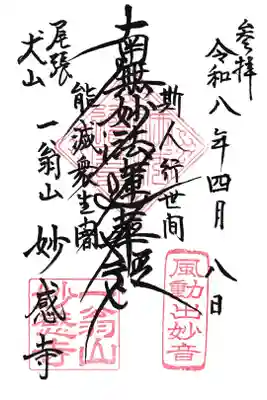 参拝
令和八年四月八日
斯人行世間
南無妙法蓮華経
能滅衆生闇
尾張
犬山
一翁山 妙感寺
風動出妙音
一翁山
妙感寺